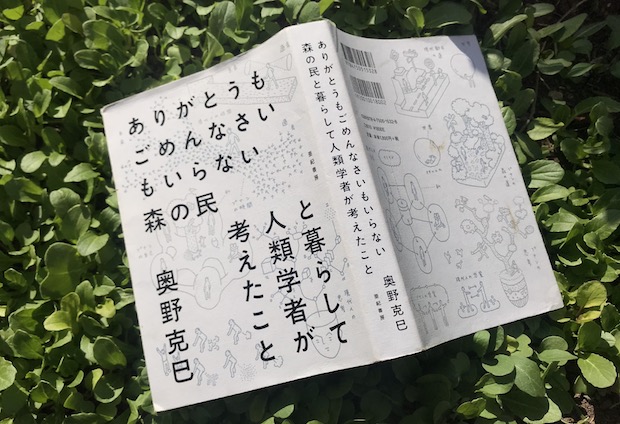 ありがとうも
ごめんなさい
もいらない
森の民
と暮らして
人類学者が
考えたこと
奥野克巳
亜紀書房
ありがとうもごめんなさいもいらない
森の民と暮らして人類学者が考えたこと
奥野克巳
亜紀書房